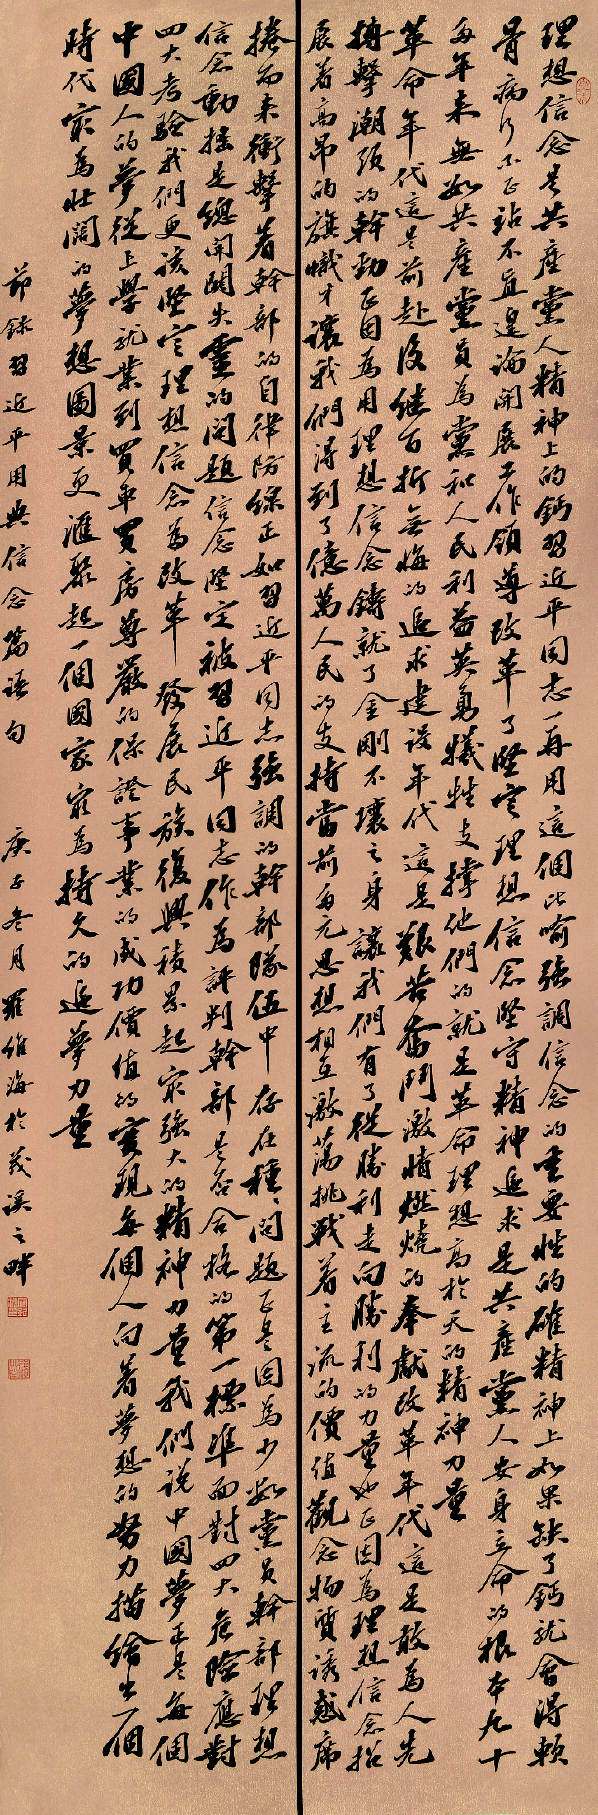 理想信念是共產黨人精神上的鈣習近平同志一再用這個比喻強調信念的重要性的確精神上如果缺了鈣就會得軟
骨病行不正站不直遑論開展工作領導改革了堅定理想信念堅守精神追求是共產黨人安身立命的根本九十
多年來無數共產黨員為黨和人民利益英勇犧牲支撐他們的就是革命理想高於天的精神力量
革命年代這是前赴後繼百折無悔的追求建設年代這是艱苦奮鬥激情燃燒的奉獻改革年代這是敢為人先
搏擊潮頭的幹勁正因為用理想信念鑄就了金剛不壞之身讓我們有了從勝利走向勝利的力量也正因為理想信念招
展着高昂的旗幟才讓我們得到了億萬人民的支持當前多元思想相互激蕩挑戰着主流的價值觀念物質誘惑席
捲而來衝擊着幹部的自律防線正如習近平同志強調的幹部隊伍中存在種種問題正是因為少數黨員幹部理想
信念動搖是總開關失靈的問題信念堅定被習近平同志作為評判幹部是否合格的第一標準面對四大危險應對
四大考驗我們更該堅定理想信念為改革發展民族復興積累起最強大的精神力量我們說中國夢正是每個
中國人的夢從上學就業到買車買房尊嚴的保證事業的成功價值的實現每個人向着夢想的努力描繪出一個
時代最為壯闊的夢想圖景更匯聚起一個國家最為持久的追夢力量
節錄習近平用典信念篇語句 庚子冬月羅維海於茂溪之畔